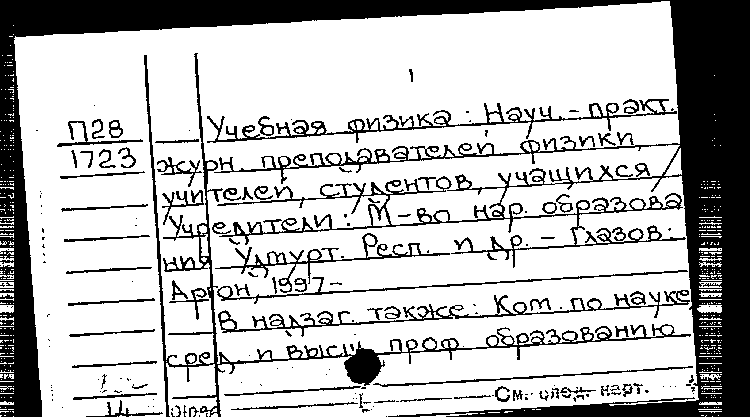 П28
1723
Учебная физика : Науч. - практ.
журн. преподавателей физики,
учителей, студентов, учащихся /
Учредители : М-во нар. образова
ния Удмурт. Респ. и др. - Глазов :
Аргон, 1997-
В надзаг. также: Ком. по науке,
сред. и высш. проф. образованию
См. след. карт.